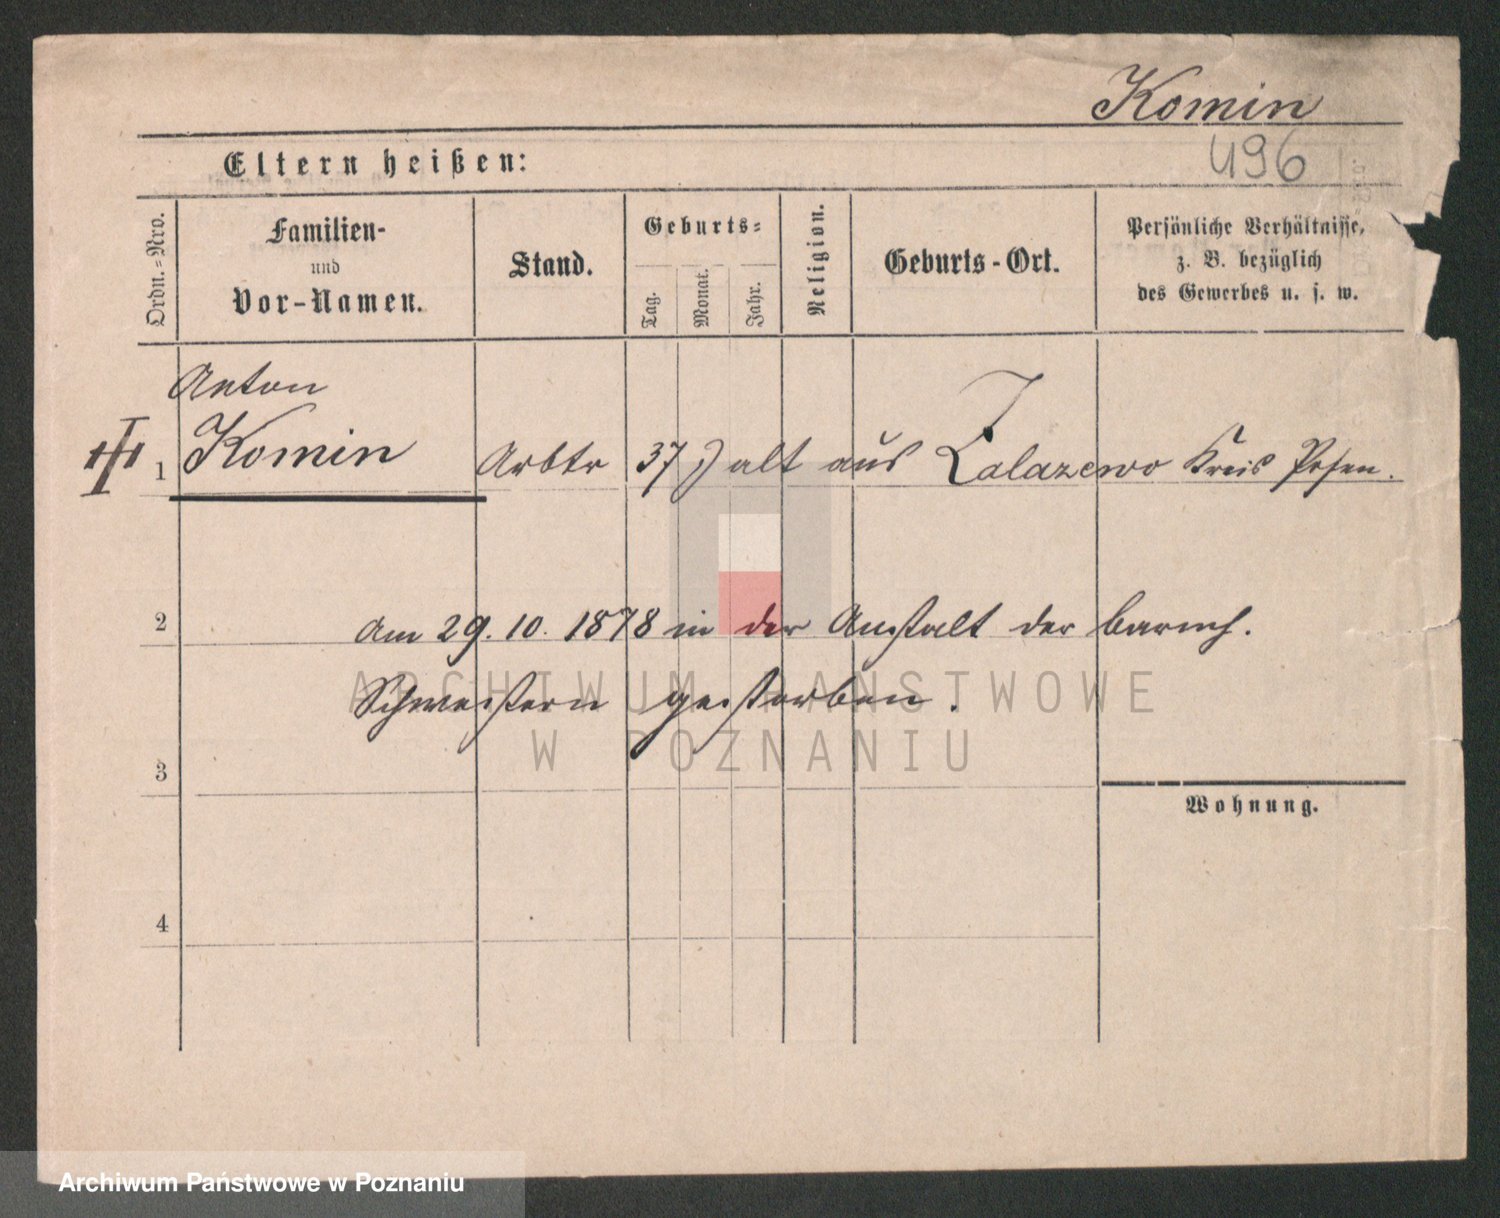 Komin
496
Eltern heißen:
Ordn.-Nro.
Familien-
und
Vor-Namen.
Stand.
Geburts-
Tag.
Monat.
Jahr.
Religion.
Geburts-Ort.
Persönliche Verhältnisse,
z. B. bezüglich
des Gewerbes u. s. w.
Anton
1 Komin Arbtr 37 J alt aus Zalazewo Kreis Posen.
2 Am 29. 10. 1878 in der Anstalt der barmh.
Schwestern gestorben.
ARCHIWUM PAŃSTWOWE
W POZNANIU
3
Wohnung.
4
Archiwum Państwowe w Poznaniu